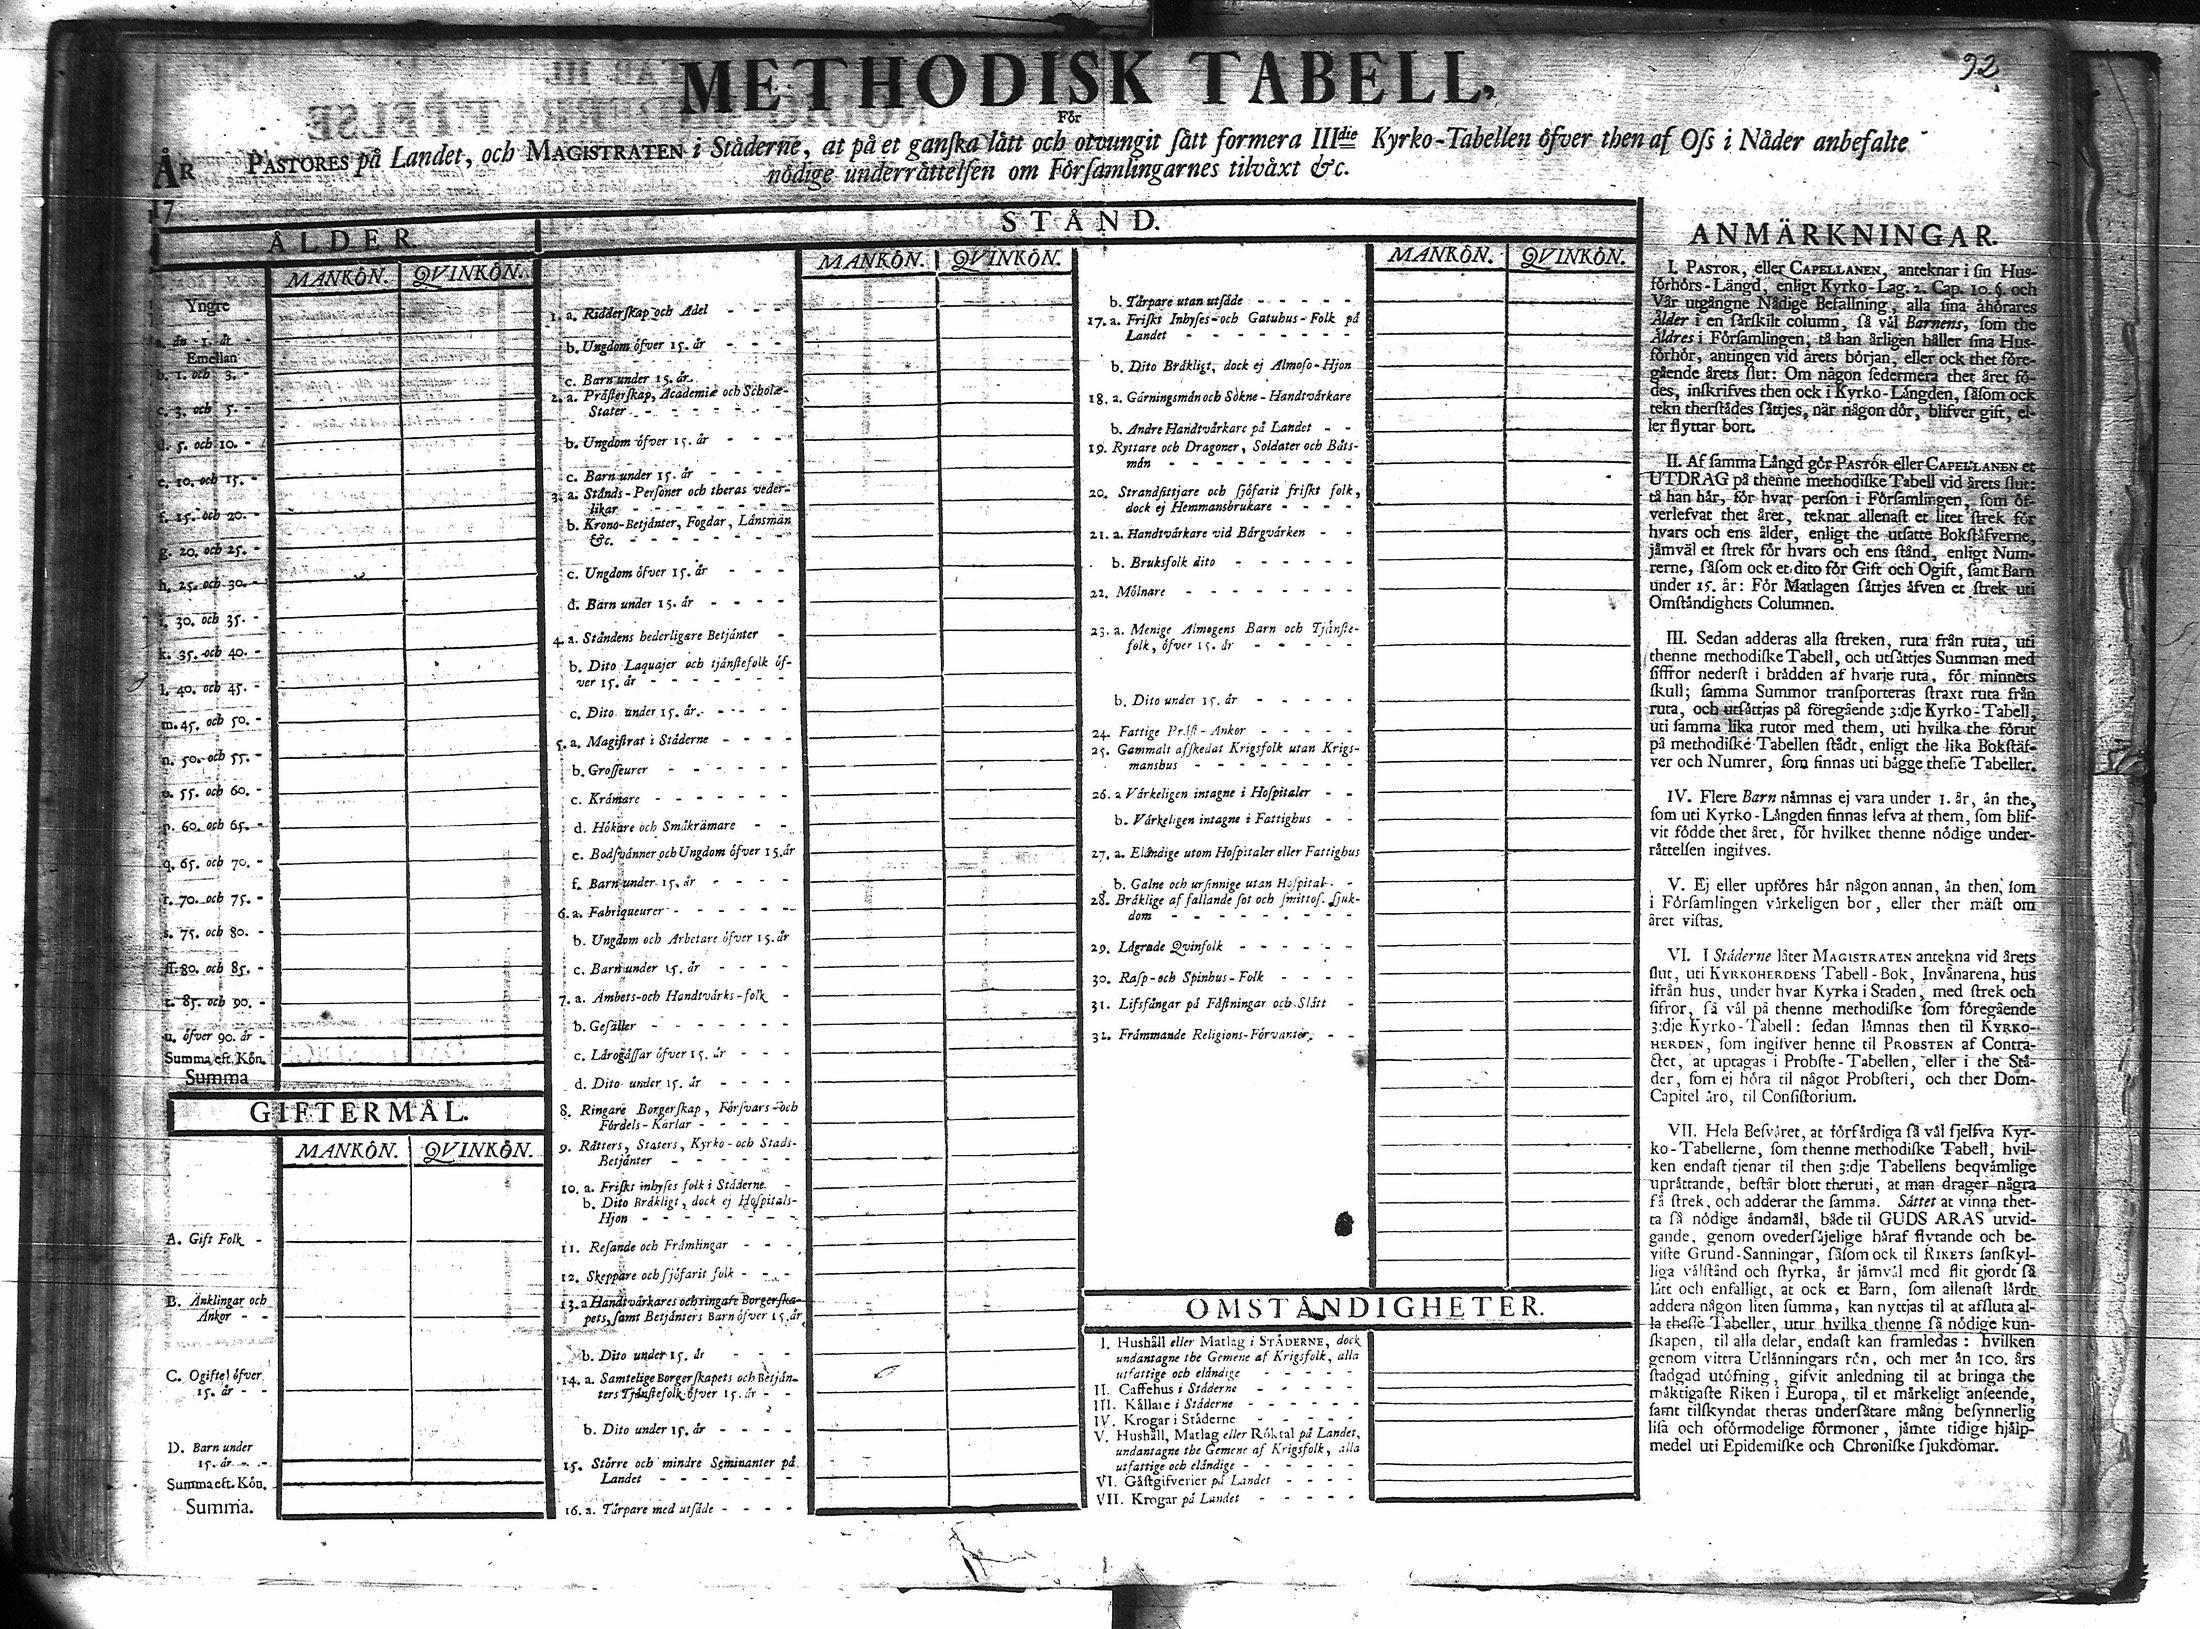 92
METHODISK TABELL,
För
ÅR PASTORES på Landet, och MAGISTRATEN i Städerne, at på et ganska lätt och otvungit sätt formera III<u>die</u> Kyrko-Tabellen öfver then af Oss i Nåder anbefalte
nödige underrättelsen om Församlingarnes tilväxt &c.
17
ÅLDER.
MANKÖN. QVINKÖN.
Yngre
a. än 1. år -
Emellan
b. 1. och 3. -
c. 3. och 5. -
d. 5. och 10. -
e. 10. och 15. -
f. 15. och 20. -
g. 20. och 25. -
h. 25. och 30. -
i. 30. och 35. -
k. 35. och 40. -
l. 40. och 45. -
m. 45. och 50. -
n. 50. och 55. -
o. 55. och 60. -
p. 60. och 65. -
q. 65. och 70. -
r. 70. och 75. -
s. 75. och 80. -
ss. 80. och 85. -
t. 85. och 90. -
u. öfver 90. år -
Summa eft. Kön.
Summa
GIFTERMÅL.
MANKÖN. QVINKÖN.
A. Gift Folk -
B. Änklingar och
Änkor - -
C. Ogifte öfver
15. år - -
D. Barn under
15. år - -
Summa eft. Kön.
Summa.
STÅND.
MANKÖN. QVINKÖN.
1. a. Ridderskap och Adel - - -
b. Ungdom öfver 15. år - - -
c. Barn under 15. år.
2. a. Prästerskap, Academiæ och Scholæ-
Stater - - - - - -
b. Ungdom öfver 15. år - - -
c. Barn under 15. år - - - -
3. a. Stånds-Personer och theras veder-
likar - - - - - - -
b. Krono-Betjänter, Fogdar, Länsmän
&c. - - - - - - -
c. Ungdom öfver 15. år - - -
d. Barn under 15. år - - - -
4. a. Ståndens hederligare Betjänter -
b. Dito Laquajer och tjänstefolk öf-
ver 15. år - - - - - - -
c. Dito under 15. år. - - - -
5. a. Magistrat i Städerne - - - -
b. Grosseurer - - - - - -
c. Krämare - - - - - - -
d. Hökare och Småkrämare - -
e. Bodsvänner och Ungdom öfver 15. år
f. Barn under 15. år - - - -
6. a. Fabriqueurer - - - - - -
b. Ungdom och Arbetare öfver 15. år
c. Barn under 15. år - - - -
7. a. Ämbets-och Handtvärks-folk -
b. Gesäller - - - - - - -
c. Lärogåssar öfver 15. år - - -
d. Dito under 15. år - - - -
8. Ringare Borgerskap, Försvars-och
Fördels-Karlar - - - - -
9. Rätters, Staters, Kyrko-och Stads-
Betjänter - - - - - -
10. a. Friskt inhyses folk i Städerne -
b. Dito Bräkligt, dock ej Hospitals-
Hjon - - - - - - -
11. Resande och Främlingar - - -
12. Skeppare och sjöfarit folk - - -
13. a Handtvärkares och ringare Borgerska-
pets, samt Betjänters Barn öfver 15. år
b. Dito under 15. år - - -
14. a. Samtelige Borgerskapets och Betjän-
ters Tjänstefolk öfver 15. år - -
b. Dito under 15. år - - - -
15. Större och mindre Seminanter på
Landet - - - - - - -
16. a. Tårpare med utsäde - - - -
MANKÖN. QVINKÖN.
b. Tårpare utan utsäde - - - - -
17. a. Friskt Inhyses-och Gatuhus-Folk på
Landet - - - - - -
b. Dito Bräkligt, dock ej Almoso-Hjon
18. a. Gärningsmän och Sökne-Handtvärkare
b. Andre Handtvärkare på Landet - -
19. Ryttare och Dragoner, Soldater och Båts-
män - - - - - - - -
20. Strandsittjare och sjöfarit friskt folk,
dock ej Hemmansbrukare - - - -
21. a. Handtvärkare vid Bärgvärken - -
b. Bruksfolk dito - - - - - -
22. Mölnare - - - - - - - -
23. a. Menige Almogens Barn och Tjänste-
folk, öfver 15. år - - - - -
b. Dito under 15. år - - - - -
24. Fattige Präst-Änkor - - - - -
25. Gammalt afskedat Krigsfolk utan Krigs-
manshus - - - - - - -
26. a Värkeligen intagne i Hospitaler - -
b. Värkeligen intagne i Fattighus - -
27. a. Eländige utom Hospitaler eller Fattighus
b. Galne och ursinnige utan Hospital - -
28. Bräklige af fallande sot och smittos. sjuk-
dom - - - - - - - -
29. Lägrade Qvinfolk - - - - - -
30. Rasp-och Spinhus-Folk - - - -
31. Lifsfångar på Fästningar och Slått -
32. Främmande Religions-Förvanter. - -
OMSTÄNDIGHETER.
I. Hushåll eller Matlag i STÄDERNE, dock
undantagne the Gemene af Krigsfolk, alla
utfattige och eländige - - - - -
II. Caffehus i Städerne - - - - -
III. Källare i Städerne - - - - - -
IV. Krogar i Städerne - - - - -
V. Hushåll, Matlag eller Röktal på Landet,
undantagne the Gemene af Krigsfolk, alla
utfattige och eländige - - - - -
VI. Gästgifverier på Landet - - - -
VII. Krogar på Landet - - - - -
ANMÄRKNINGAR.
I. PASTOR, eller CAPELLANEN, anteknar i sin Hus-
förhörs-Längd, enligt Kyrko-Lag. 2. Cap. 10. §. och
Vår utgångne Nådige Befallning, alla sina åhörares
Ålder i en särskilt column, så väl Barnens, som the
Äldres i Församlingen, tå han årligen håller sina Hus-
förhör, antingen vid årets början, eller ock thet före-
gående årets slut: Om någon sedermera thet året fö-
des, inskrifves then ock i Kyrko-Längden, såsom ock
tekn therstädes sättjes, när någon dör, blifver gift, el-
ler flyttar bort.
II. Af samma Längd gör PASTOR eller CAPELLANEN et
UTDRAG på thenne methodiske Tabell vid årets slut:
tå han här, för hvar person i Församlingen, som öf-
verlefvat thet året, teknar allenast et litet strek för
hvars och ens ålder, enligt the utsatte Bokstäfverne,
jämväl et strek för hvars och ens stånd, enligt Num-
rerne, såsom ock et dito för Gift och Ogift, samt Barn
under 15. år: För Matlagen sättjes äfven et strek uti
Omständighets Columnen.
III. Sedan adderas alla streken, ruta från ruta, uti
thenne methodiske Tabell, och utsättjes Summan med
siffror nederst i brädden af hvarje ruta, för minnets
skull; samma Summor transporteras straxt ruta från
ruta, och utsättjas på föregående 3:dje Kyrko-Tabell,
uti samma lika rutor med them, uti hvilka the förut
på methodiske Tabellen stådt, enligt the lika Bokstäf-
ver och Numrer, som finnas uti bägge thesse Tabeller.
IV. Flere Barn nämnas ej vara under 1. år, än the,
som uti Kyrko-Längden finnas lefva af them, som blif-
vit födde thet året, för hvilket thenne nödige under-
rättelsen ingifves.
V. Ej eller upföres här någon annan, än then, som
i Församlingen värkeligen bor, eller ther mäst om
året vistas.
VI. I Städerne låter MAGISTRATEN antekna vid årets
slut, uti KYRKOHERDENS Tabell-Bok, Invånarena, hus
ifrån hus, under hvar Kyrka i Staden, med strek och
sifror, så väl på thenne methodiske som föregående
3:dje Kyrko-Tabell: sedan lämnas then til KYRKO-
HERDEN, som ingifver henne til PROBSTEN af Contra-
ctet, at uptagas i Probste-Tabellen, eller i the Stä-
der, som ej höra til något Probsteri, och ther Dom-
Capitel äro, til Consistorium.
VII. Hela Besväret, at förfärdiga så väl sjelfva Kyr-
ko-Tabellerne, som thenne methodiske Tabell, hvil-
ken endast tjenar til then 3:dje Tabellens beqvämlige
uprättande, består blott theruti, at man drager några
få strek, och adderar the samma. Sättet at vinna thet-
ta så nödige ändamål, både til GUDS ÄRAS utvid-
gande, genom ovedersäjelige häraf flytande och be-
viste Grund-Sanningar, såsom ock til RIKETS sanskyl-
liga välstånd och styrka, är jämväl med flit gjordt så
lätt och enfalligt, at ock et Barn, som allenast lärdt
addera någon liten summa, kan nyttjas til at afsluta al-
la thesse Tabeller, utur hvilka thenne så nödige kun-
skapen, til alla delar, endast kan framledas: hvilken
genom vittra Utlänningars rön, och mer än 100. års
stadgad utöfning, gifvit anledning til at bringa the
mäktigaste Riken i Europa, til et märkeligt anseende,
samt tilskyndat theras undersåtare mång besynnerlig
lisa och oförmodelige förmoner, jämte tidige hjälp-
medel uti Epidemiske och Chroniske sjukdomar.